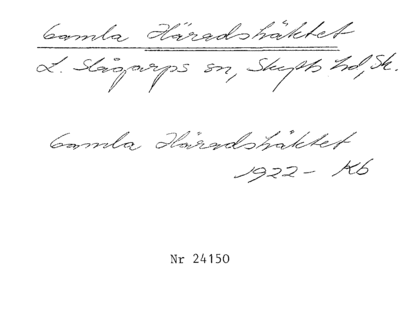 Gamla Häradshäktet
L. Slågarps sn, Skytts hd, Sk.
Gamla Häradshäktet
1922- Kb
Nr 24150